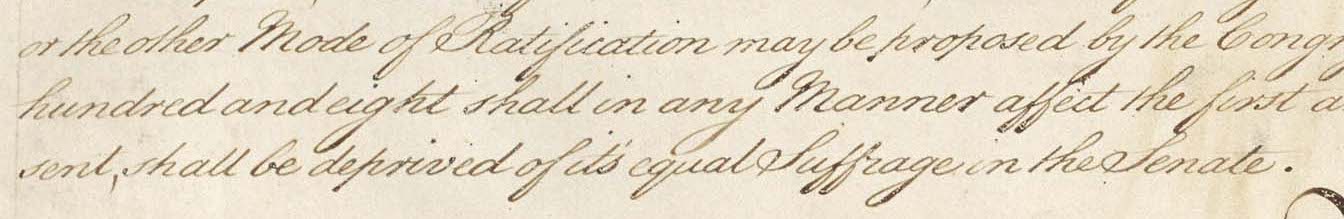 or the other Mode of Ratification may be proposed by the Congr
hundred and eight shall in any Manner affect the first a
sent, shall be deprived of it's equal Suffrage in the Senate.